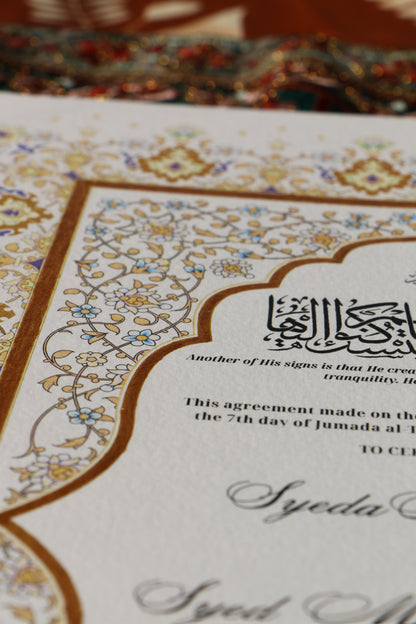 لتسكنوا إليها
Another of His signs is that He crea
tranquility. H
This agreement made on th
the 7th day of Jumada al-
TO CE
Syeda
Syed M